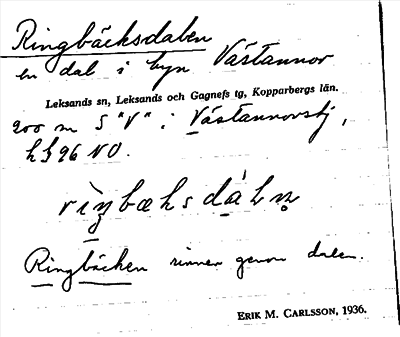 Ringbäcksdalen
en dal i byn Västannor
Leksands sn, Leksands och Gagnefs tg, Kopparbergs län.
200 m S "V" i Västannorstj,
h § 96 NO.
rìŋbæksdáln̥
Ringbäcken rinner genom dalen.
ERIK M. CARLSSON, 1936.